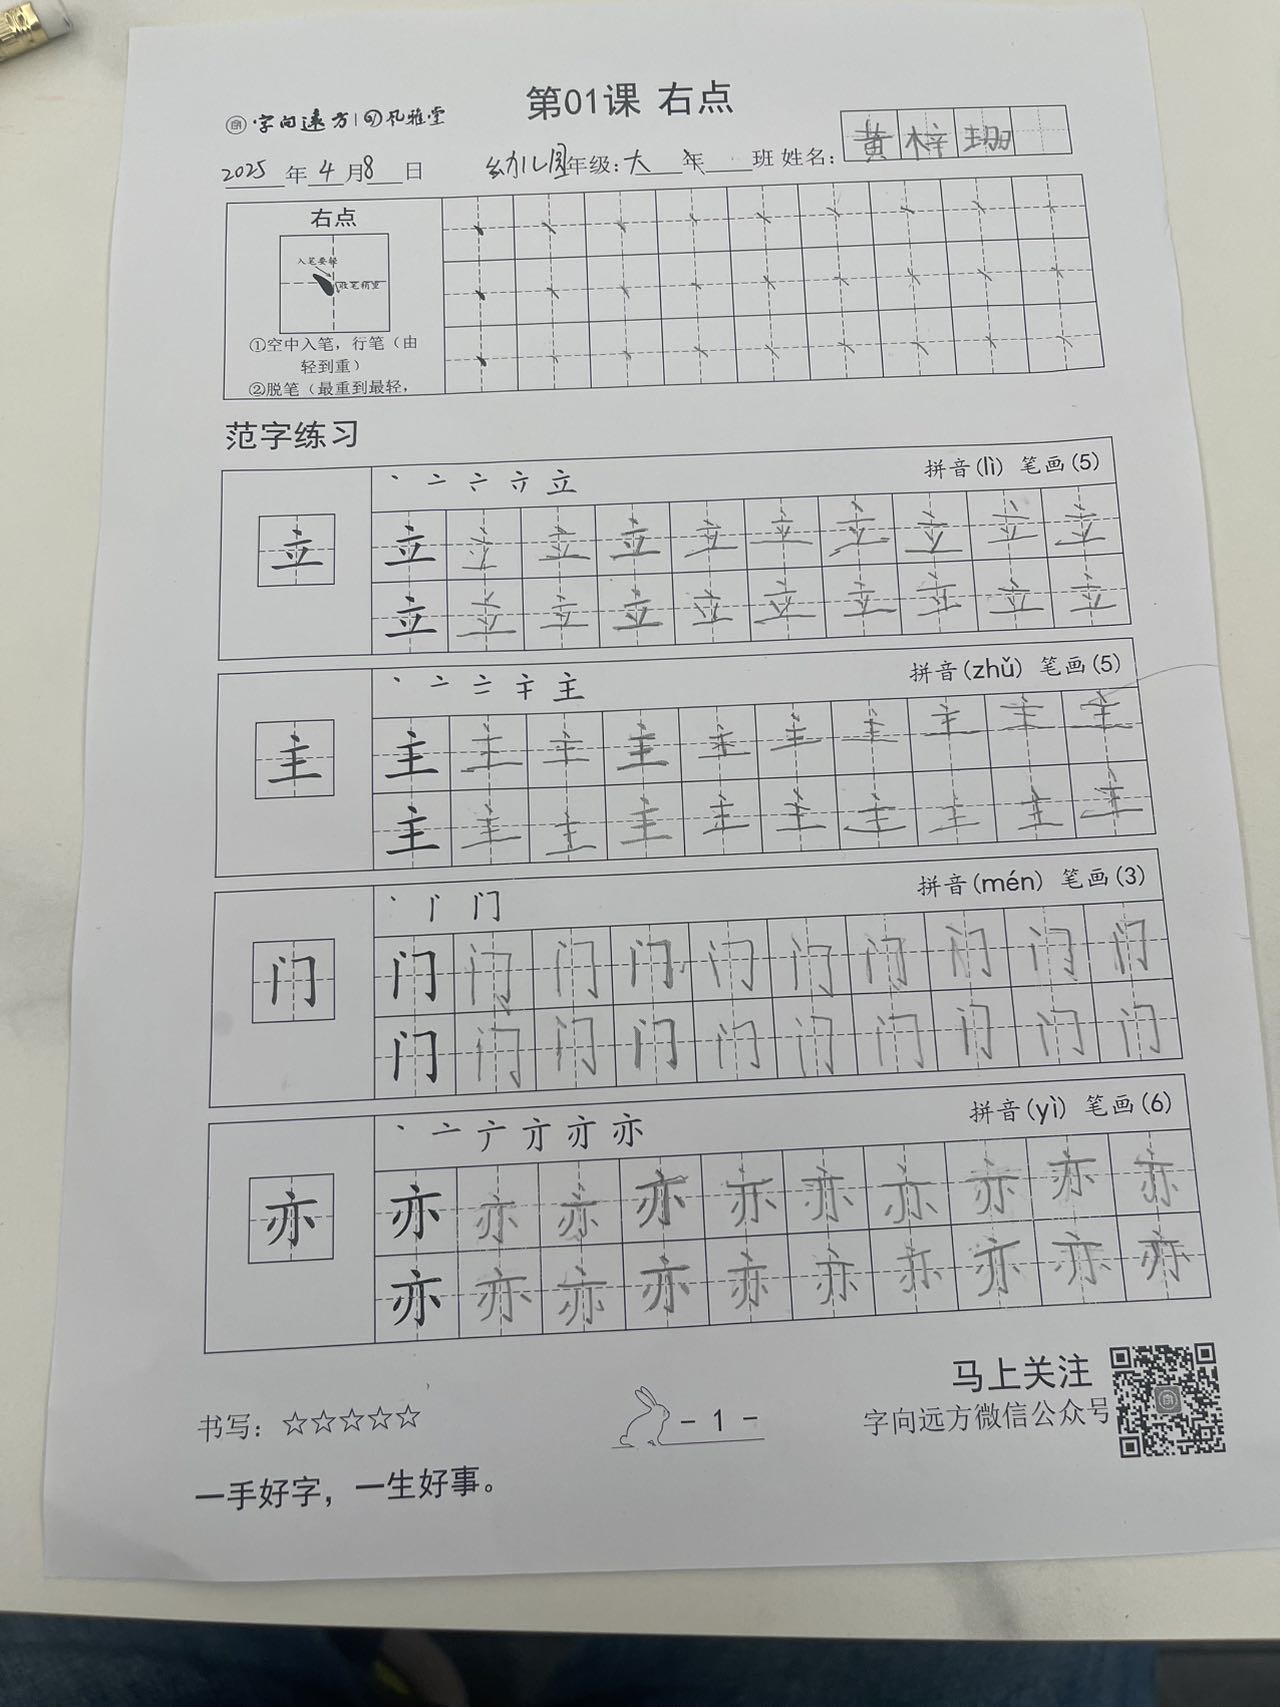 第01课 右点
字向远方 风雅堂
2025年4月8日 幼儿园年级:大 年 班 姓名:黄梓珊
右点
入笔要轻
收笔稍重
①空中入笔，行笔（由
轻到重）
②脱笔（最重到最轻，
范字练习
丶 亠 立 拼音(lì) 笔画(5)
立 立 立 立 立 立 立 立 立 立 立
立 立 立 立 立 立 立 立 立 立
丶 亠 主 拼音(zhǔ) 笔画(5)
主 主 主 主 主 主 主 主 主 主 主
主 主 主 主 主 主 主 主 主 主
丶 门 拼音(mén) 笔画(3)
门 门 门 门 门 门 门 门 门 门 门
门 门 门 门 门 门 门 门 门 门
丶 亠 亦 拼音(yì) 笔画(6)
亦 亦 亦 亦 亦 亦 亦 亦 亦 亦 亦
亦 亦 亦 亦 亦 亦 亦 亦 亦 亦
马上关注
书写：☆☆☆☆☆ - 1 - 字向远方微信公众号
一手好字，一生好事。